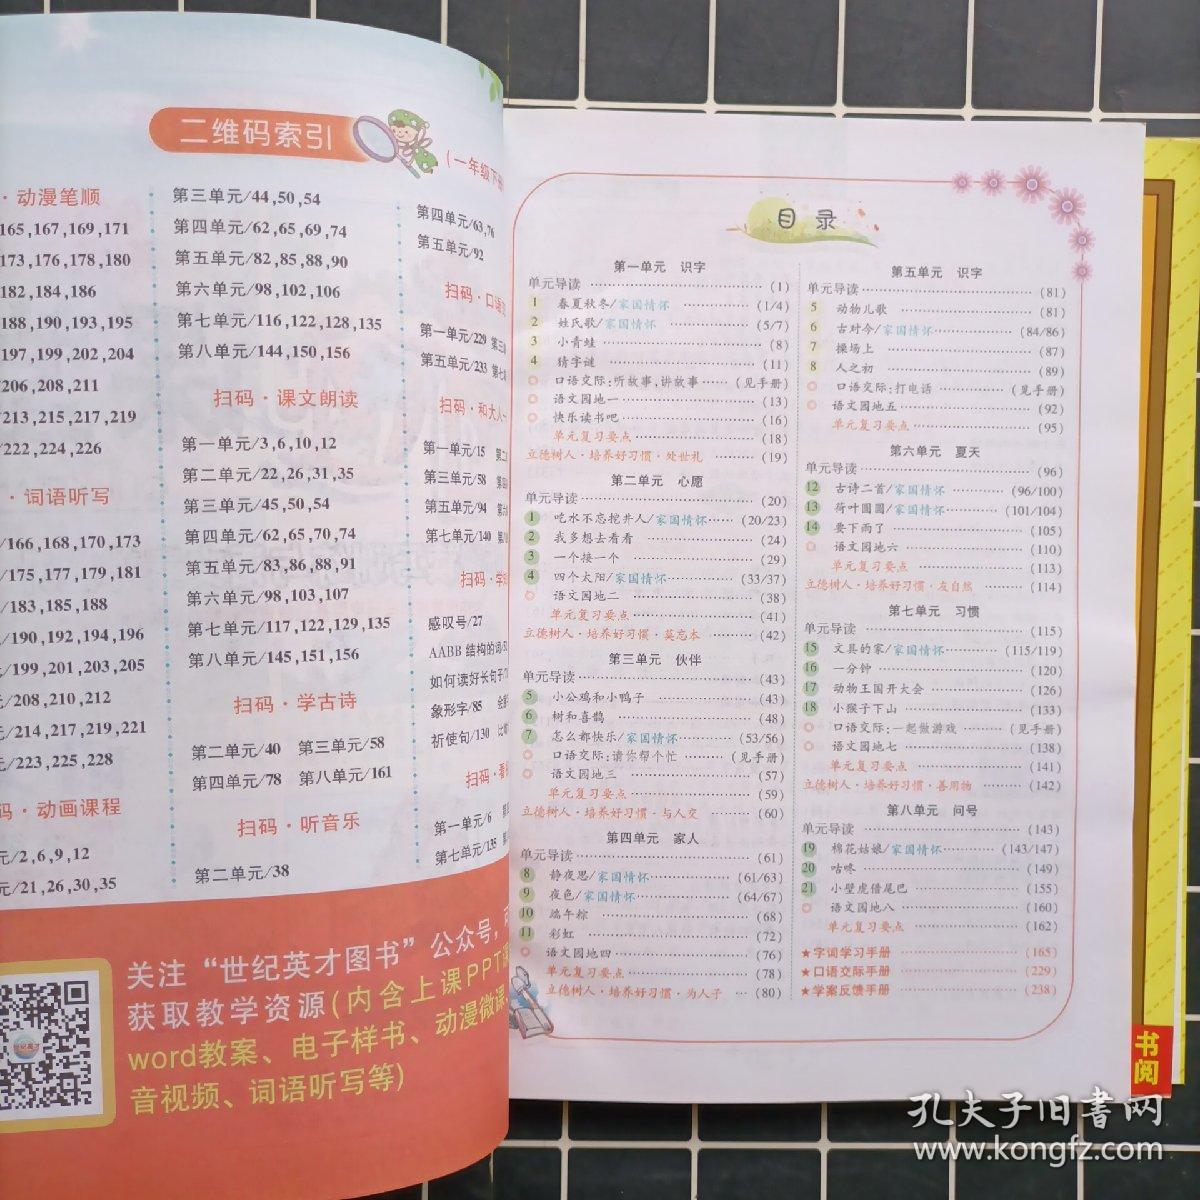 二维码索引
(一年级下册
·动漫笔顺
165,167,169,171
173,176,178,180
182,184,186
188,190,193,195
197,199,202,204
206,208,211
213,215,217,219
222,224,226
·词语听写
/166,168,170,173
/175,177,179,181
/183,185,188
/190,192,194,196
/199,201,203,205
/208,210,212
/214,217,219,221
元/223,225,228
码·动画课程
元/2,6,9,12
元/21,26,30,35
第三单元/44,50,54
第四单元/62,65,69,74
第五单元/82,85,88,90
第六单元/98,102,106
第七单元/116,122,128,135
第八单元/144,150,156
扫码·课文朗读
第一单元/3,6,10,12
第二单元/22,26,31,35
第三单元/45,50,54
第四单元/62,65,70,74
第五单元/83,86,88,91
第六单元/98,103,107
第七单元/117,122,129,135
第八单元/145,151,156
扫码·学古诗
第二单元/40 第三单元/58
第四单元/78 第八单元/161
扫码·听音乐
第二单元/38
第四单元/63,76
第五单元/92
扫码·口语
第一单元/229
第五单元/233
扫码·和大人一
第一单元/15
第三单元/58
第五单元/94
第七单元/140
扫码·学
感叹号/27
AABB 结构的词
如何读好长句子
象形字/85
祈使句/130
扫码·看
第一单元/6
第七单元/135
关注“世纪英才图书”公众号,可
获取教学资源(内含上课PPT课
word教案、电子样书、动漫微课
音视频、词语听写等)
世纪英才
目录
第一单元 识字
单元导读 (1)
1 春夏秋冬/家国情怀 (1/4)
2 姓氏歌/家国情怀 (5/7)
3 小青蛙 (8)
4 猜字谜 (11)
口语交际:听故事,讲故事 (见手册)
语文园地一 (13)
快乐读书吧 (16)
单元复习要点 (18)
立德树人·培养好习惯·处世礼 (19)
第二单元 心愿
单元导读 (20)
1 吃水不忘挖井人/家国情怀 (20/23)
2 我多想去看看 (24)
3 一个接一个 (29)
4 四个太阳/家国情怀 (33/37)
语文园地二 (38)
单元复习要点 (41)
立德树人·培养好习惯·莫忘本 (42)
第三单元 伙伴
单元导读 (43)
5 小公鸡和小鸭子 (43)
6 树和喜鹊 (48)
7 怎么都快乐/家国情怀 (53/56)
口语交际:请你帮个忙 (见手册)
语文园地三 (57)
单元复习要点 (59)
立德树人·培养好习惯·与人交 (60)
第四单元 家人
单元导读 (61)
8 静夜思/家国情怀 (61/63)
9 夜色/家国情怀 (64/67)
10 端午粽 (68)
11 彩虹 (72)
语文园地四 (76)
单元复习要点 (78)
立德树人·培养好习惯·为人子 (80)
第五单元 识字
单元导读 (81)
5 动物儿歌 (81)
6 古对今/家国情怀 (84/86)
7 操场上 (87)
8 人之初 (89)
口语交际:打电话 (见手册)
语文园地五 (92)
单元复习要点 (95)
第六单元 夏天
单元导读 (96)
12 古诗二首/家国情怀 (96/100)
13 荷叶圆圆/家国情怀 (101/104)
14 要下雨了 (105)
语文园地六 (110)
单元复习要点 (113)
立德树人·培养好习惯·友自然 (114)
第七单元 习惯
单元导读 (115)
15 文具的家/家国情怀 (115/119)
16 一分钟 (120)
17 动物王国开大会 (126)
18 小猴子下山 (133)
口语交际:一起做游戏 (见手册)
语文园地七 (138)
单元复习要点 (141)
立德树人·培养好习惯·善用物 (142)
第八单元 问号
单元导读 (143)
19 棉花姑娘/家国情怀 (143/147)
20 咕咚 (149)
21 小壁虎借尾巴 (155)
语文园地八 (160)
单元复习要点 (162)
★字词学习手册 (165)
★口语交际手册 (229)
★学案反馈手册 (238)
书
阅
孔夫子旧书网
www.kongfz.com